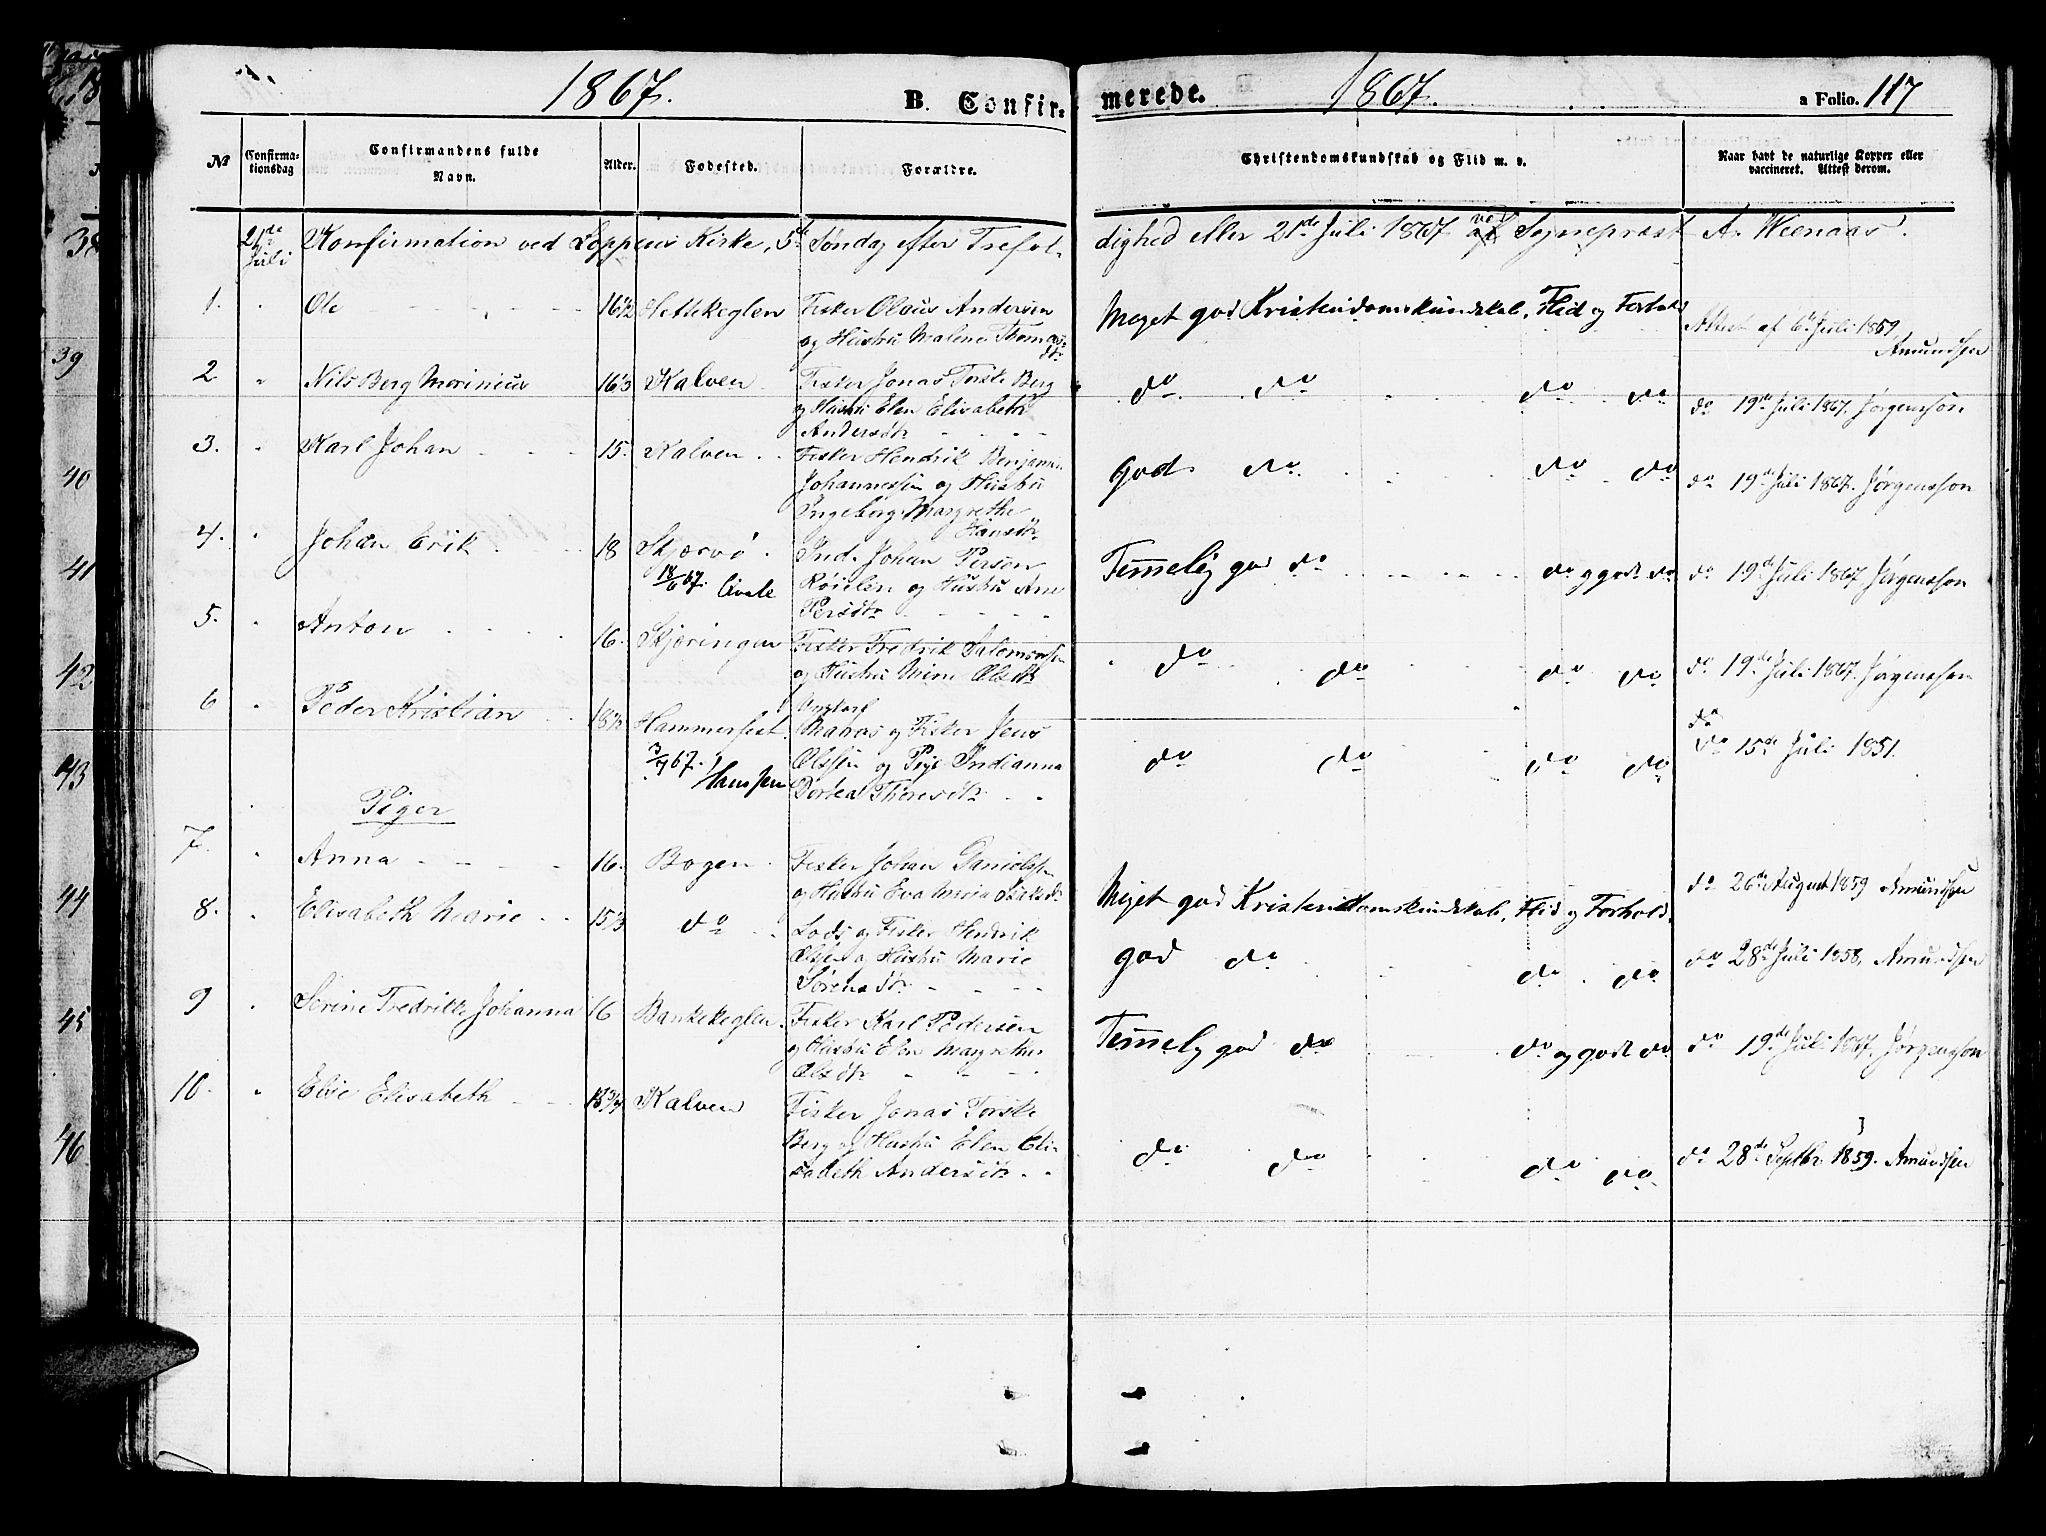 1867. B. Confir- merede. 1867. a Folio. 117
№ Confirma-tionsdag Confirmandens fulde Navn. Alder. Fødested. Forældre. Christendomskundskab og Flid m. v. Naar havt de naturlige Kopper eller vaccineret. Attest derom.
21de Juli Konfirmation ved Loppens Kirke, 5t Søndag efter Trefol- dighed eller 21de Juli 1867 ved Sognepræst A. Weenaas.
1. Ole 16½ Hettekeglen Fisker Olaus Andersen Meget god Kristendomskundskab, Flid og Forhold Attest af 6te Juli 1859
og Hustru Malene Thomas- Amundsen
dtr
2 " Nils Berg Marinius 16⅓ Kalven Fisker Jonas Torske Berg do do do do do 19de Juli 1867. Jørgensson
og Hustru Elen Elisabeth
Andersdtr
3. " Karl Johan 15. Kalven Fisker Hendrik Benjamin god do do do do 19de Juli 1867. Jørgensson
Johannessen og Hustru
Ingeborg Margrethe
Hansdtr
4. " Johan Erik 18 Skjervø Ind. Johan Persen Temmelig god do do og godt do do 19de Juli 1867 Jørgensson
18/6 67. Qvale Røielen og Hustru Ane
Persdtr
5. " Anton 16. Skjøringen Fisker Fredrik Salomonsen do do do do do 19de Juli 1867. Jørgensson
og Hustru Mine Olsdtr
6 " Peder Kristian 18½ Hammerfest. Ungkarl do
Matros og Fisker Jens do do do do do 15de Juli 1851.
3/7 67. Hanssen Olssen og Pige Indianna
Dortea Thoresdtr
Piger
7. " Anna 16. Bogen Fisker Johan Danielssen Meget god Kristendomskundskab, Flid og Forhold. do 26de August 1859 Amundsen
og Hustru Eva Maria Isaksdtr
8. " Elisabeth Marie 15⅓ do Lods og Fisker Hendrik god do do do do 28de Juli 1858, Amundsen
Olsen og Hustru Marie
Sørensdtr
9 " Serine Fredrikke Johanna 16 Bankekeglen. Fisker Karl Pedersen Temmelig god do do og godt do do 19de Juli 1867. Jørgensson
og Hustru Elen Margrethe
Olsdtr
10. " Elise Elisabeth 18¾ Kalven Fisker Jonas Torske do do do do do 28de Septbr. 1859. Amundsen
Berg og Hustru Elen Eli-
sabeth Andersdtr
38
39
40
41
42
43
44
45
46